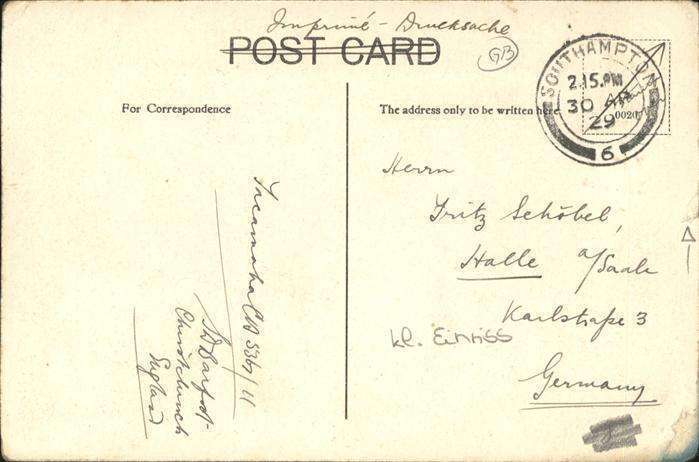 Imprimé - Drucksache
POST CARD
GB
SOUTHAMPTON
2.15.PM
30 AP
29
6
0020
For Correspondence
The address only to be written here
Herrn
Fritz Schöbel,
Halle a/Saale
Karlstraße 3
kl. Einriss
Germany
Christchurch
England